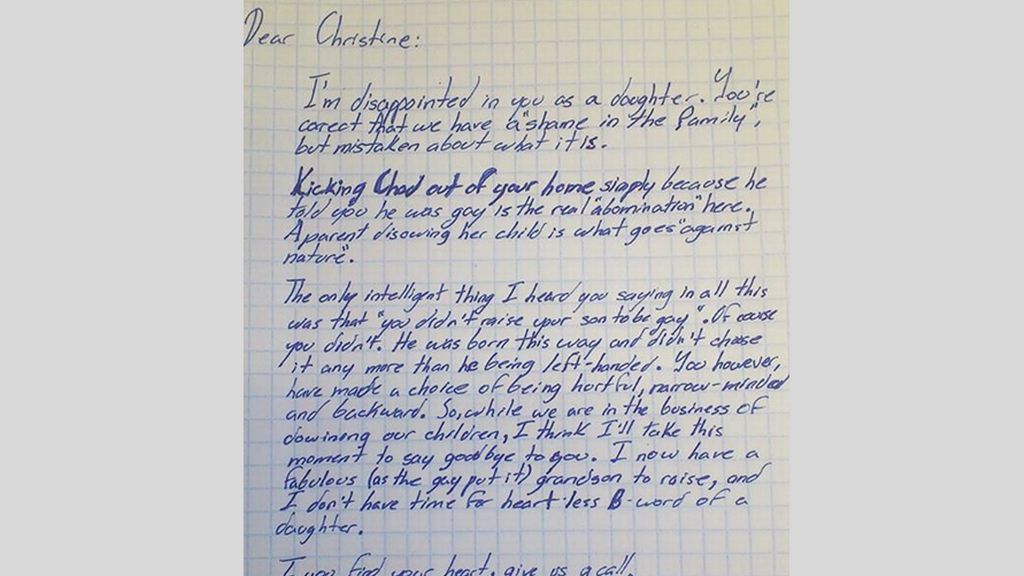 Dear Christine:
I'm disappointed in you as a daughter. You're
corect that we have a "shame in the family",
but mistaken about what it is.
Kicking Chad out of your home simply because he
told you he was gay is the real "abomination" here.
A parent disowing her child is what goes "against
nature".
The only intelligent thing I heard you saying in all this
was that "you didn't raise your son to be gay". Of couse
you didn't. He was born this way and didn't choose
it any more than he being left-handed. You however,
have made a choice of being hurtful, narrow-minded
and backward. So, while we are in the business of
dowinong our children, I think I'll take this
moment to say goodbye to you. I now have a
fabulous (as the gay put it) grandson to raise, and
I don't have time for heart less B-word of a
daughter.
I you find your heart, give us a call.